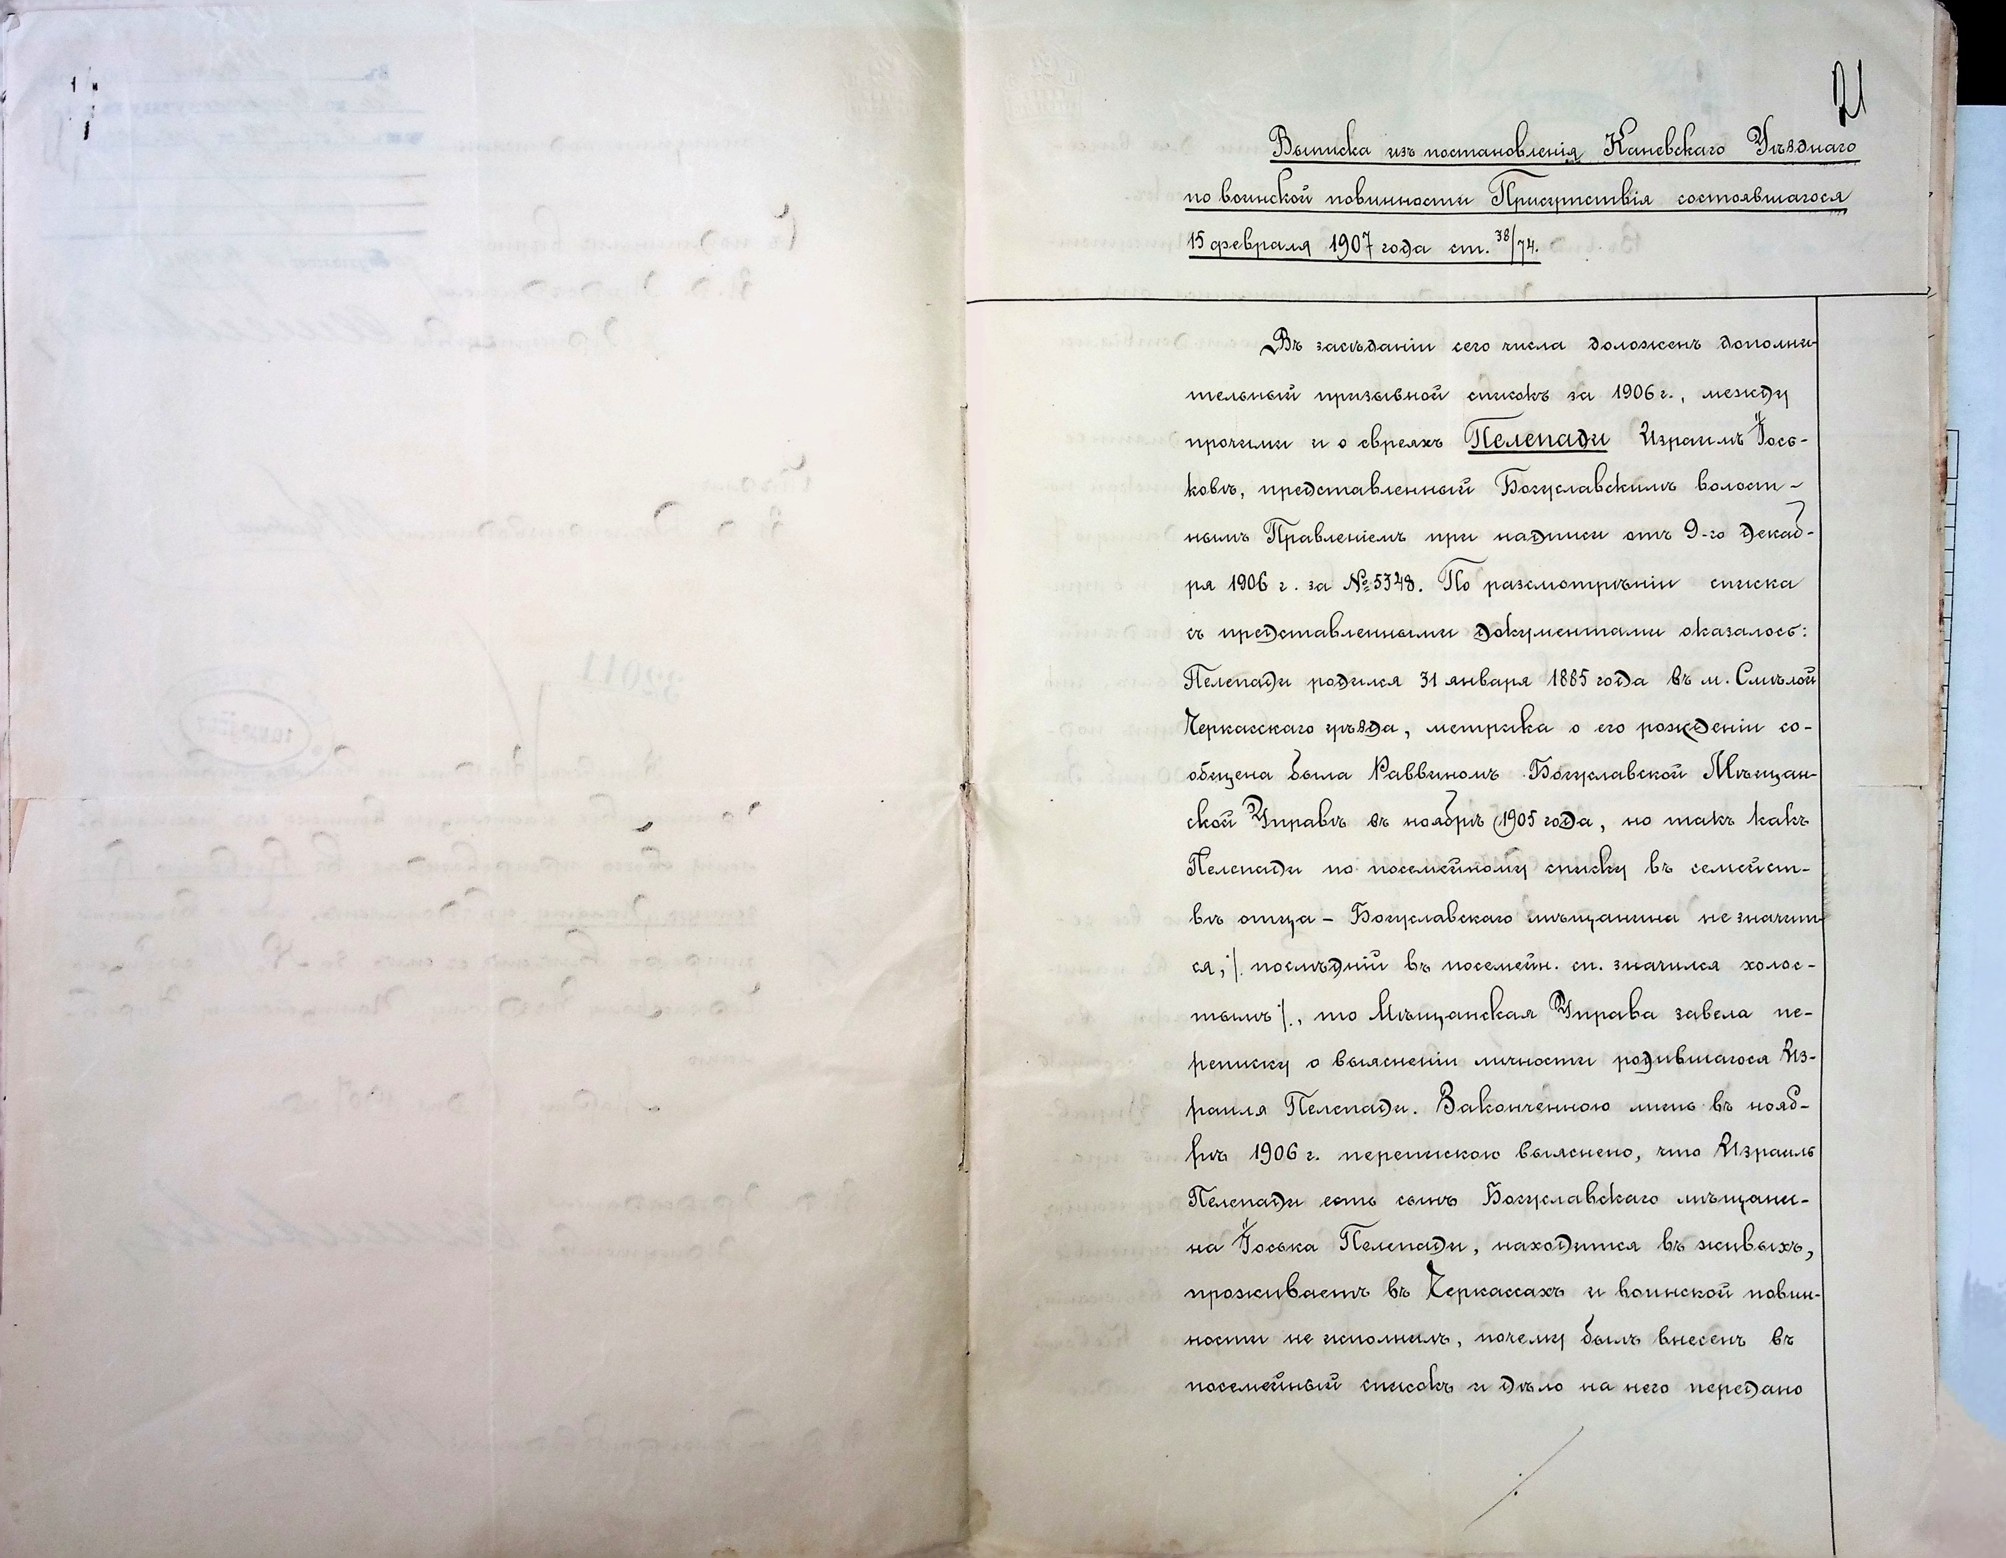 21
Выписка изъ постановленія Каневскаго Уѣзднаго
по воинской повинности Присутствія состоявшагося
15 февраля 1907 года ст. 38/74.
Въ засѣданіи сего числа доложенъ дополни-
тельный призывной списокъ за 1906 г., между
прочими и о евреяхъ Пелепади Израилѣ Іось-
ковѣ, представленный Богуславскимъ волост-
нымъ Правленіемъ при надписи отъ 9-го декаб-
ря 1906 г. за № 5348. По разсмотрѣніи списка
съ представленными документами оказалось:
Пелепади родился 31 января 1885 года въ м. Смѣлой
Черкасскаго уѣзда, метрика о его рожденіи со-
общена была Раввиномъ Богуславской Мѣщан-
ской Управѣ въ ноябрѣ 1905 года, но такъ какъ
Пелепади по посемейному списку въ семейст-
вѣ отца – Богуславскаго мѣщанина не значит-
ся, /. послѣдній въ посемейн. сп. значился холос-
тымъ /., то Мѣщанская Управа завела пе-
реписку о выясненіи личности родившагося Из-
раиля Пелепади. Законченною лишь въ нояб-
рѣ 1906 г. перепискою выяснено, что Израиль
Пелепади есть сынъ Богуславскаго мѣщани-
на Іоська Пелепади, находится въ живыхъ,
проживаетъ въ Черкассахъ и воинской повин-
ности не исполнилъ, почему былъ внесенъ въ
посемейный списокъ и дѣло на него передано